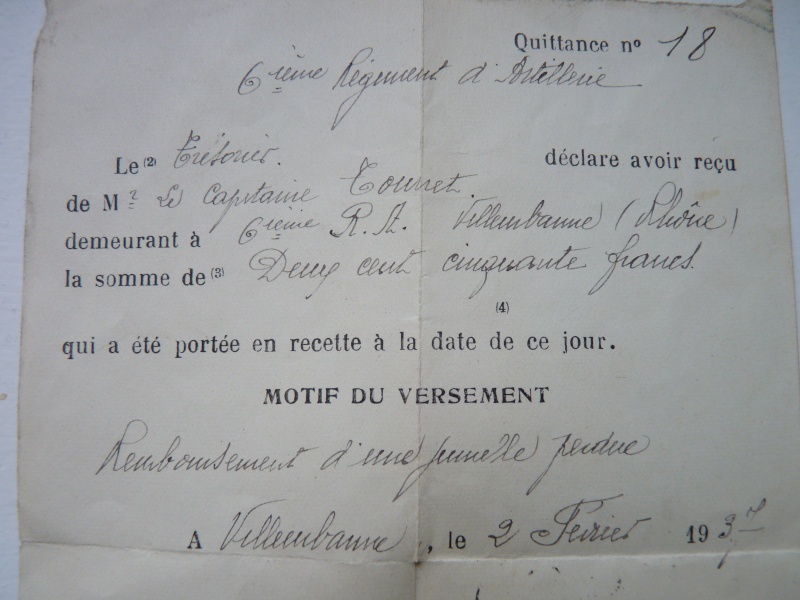 Quittance nº 18
6ième Régiment d'Artillerie
Le (2) Trésorier. déclare avoir reçu
de Mr Le Capitaine Tourret.
demeurant à 6ième R. A. Villeurbanne (Rhône)
la somme de (3) Deux cent cinquante francs.
(4)
qui a été portée en recette à la date de ce jour.
MOTIF DU VERSEMENT
Remboursement d'une jumelle perdue
A Villeurbanne, le 2 Février 1937